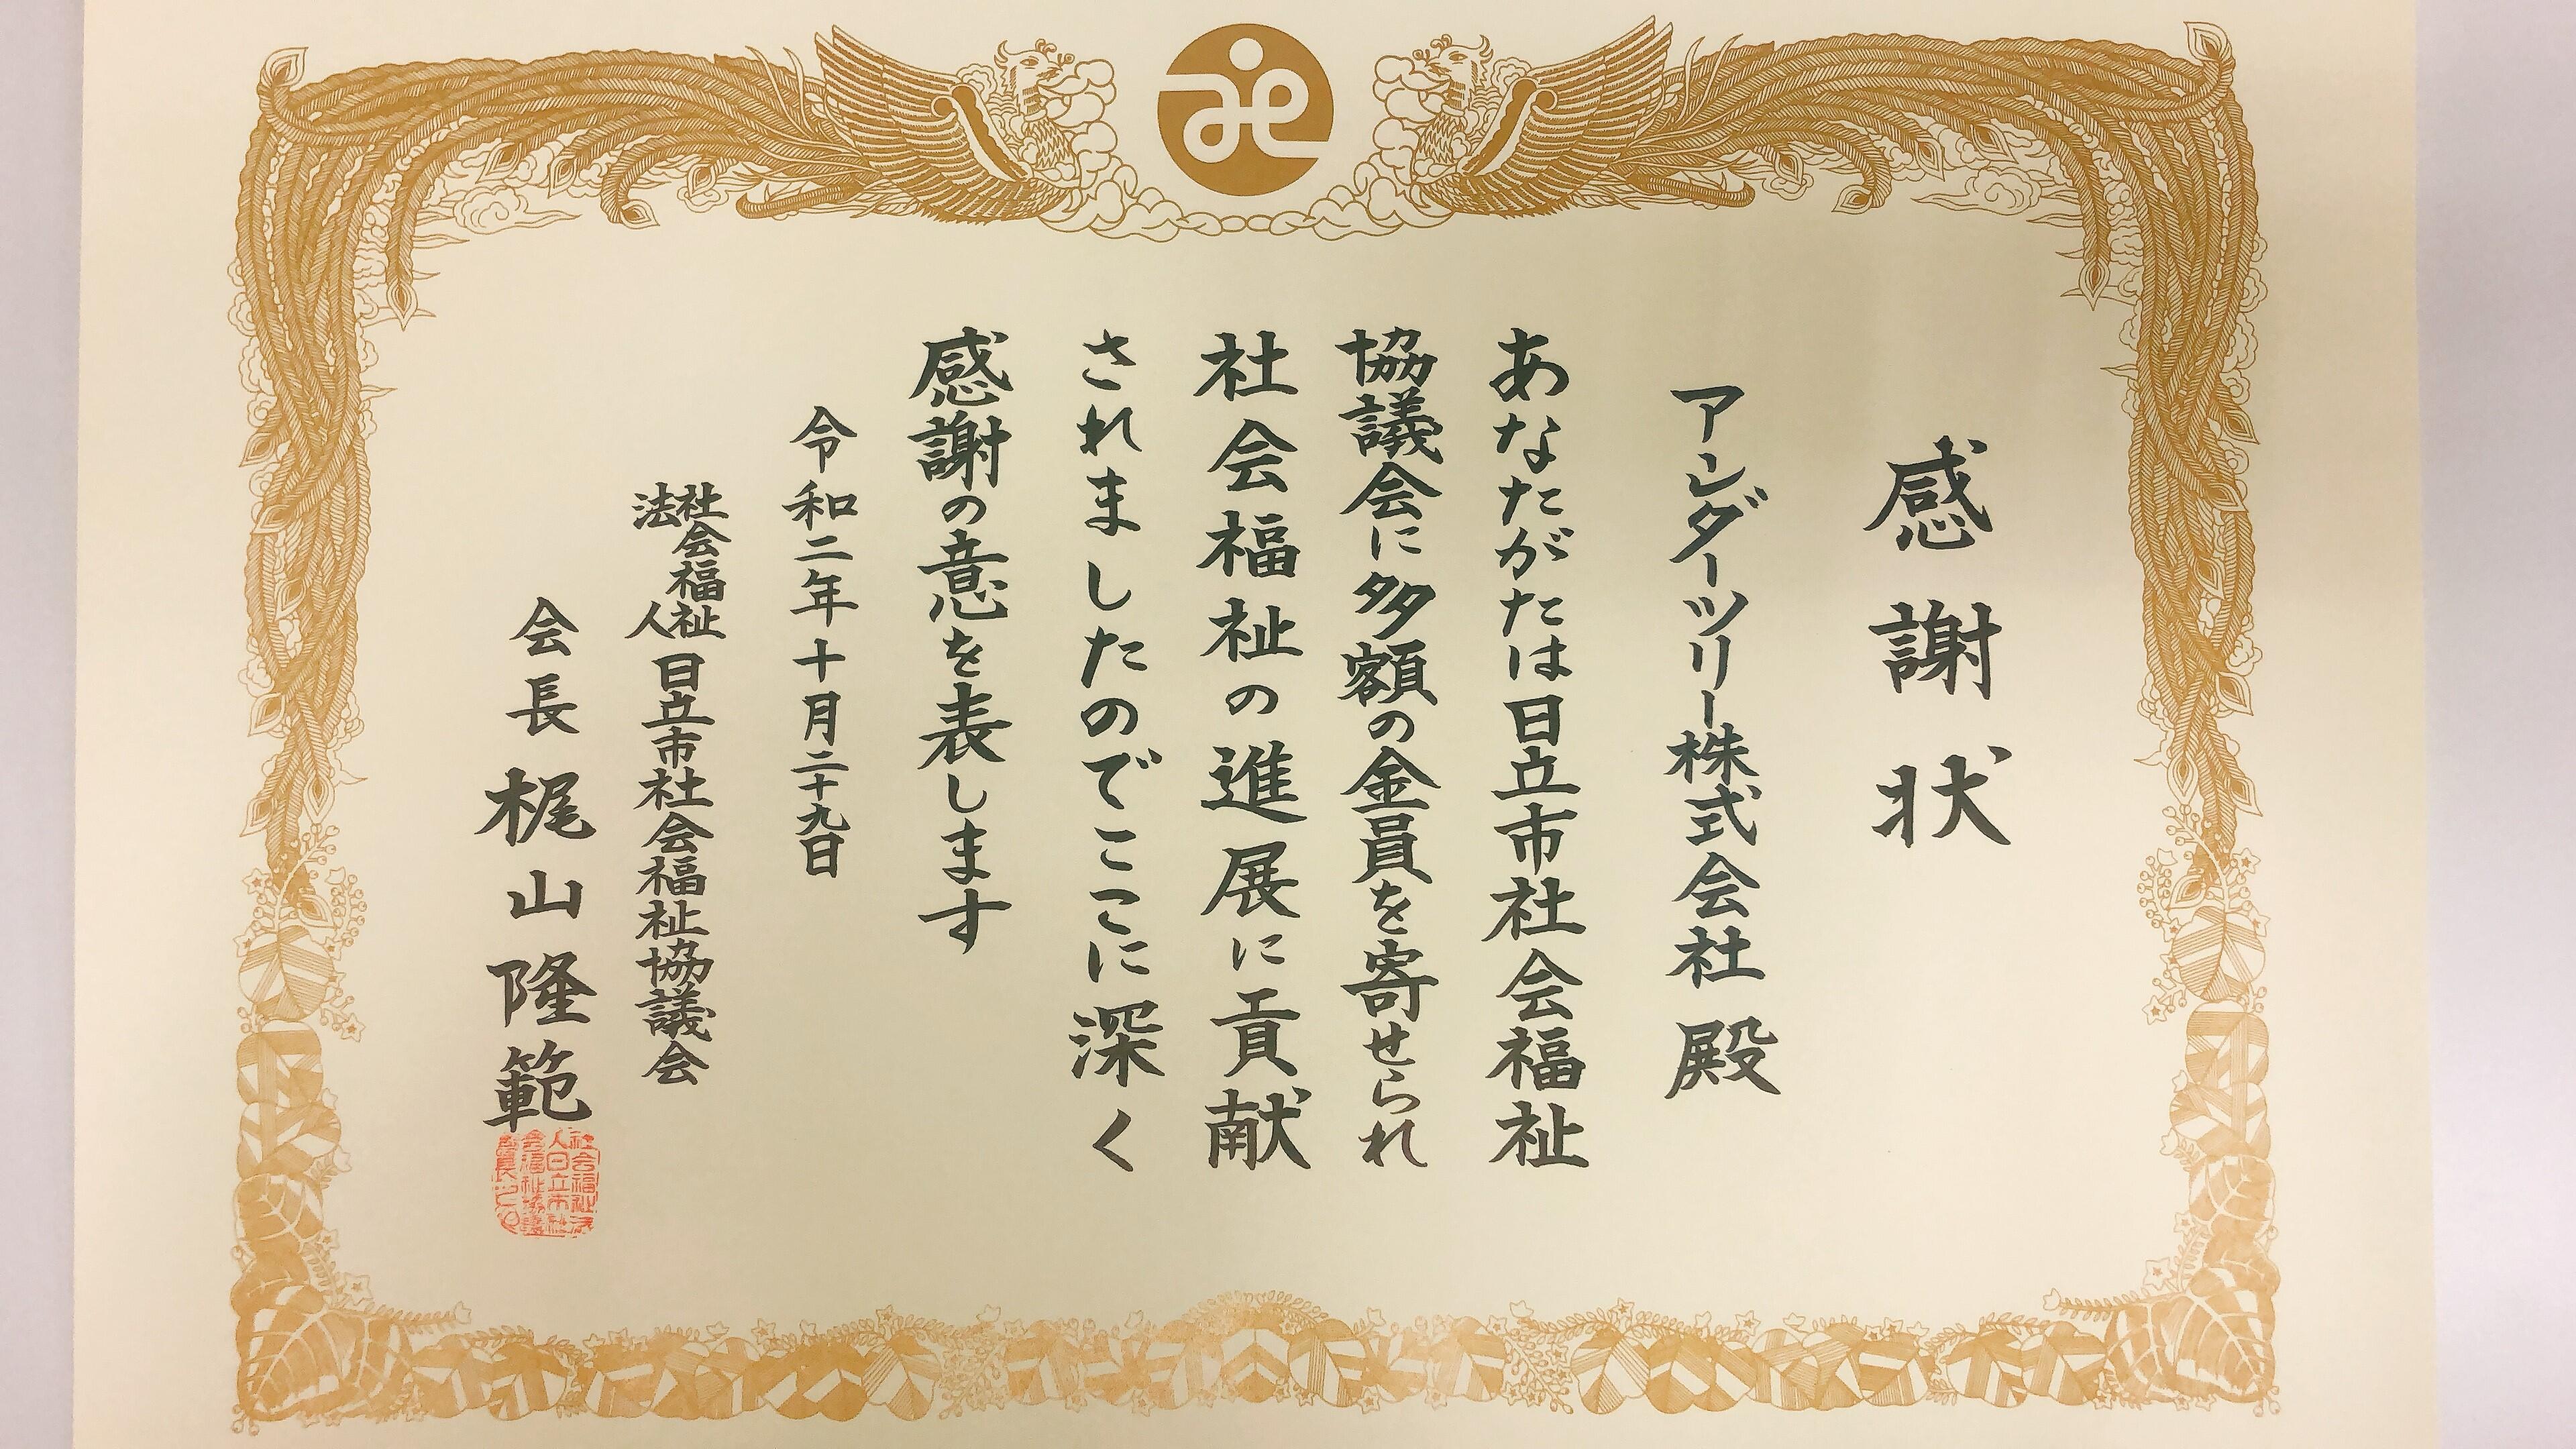 感謝状
アンダーツリー株式会社 殿
あなたがたは日立市社会福祉
協議会に多額の金員を寄せられ
社会福祉の進展に貢献
されましたのでここに深く
感謝の意を表します
令和二年十月二十九日
社会福祉法人 日立市社会福祉協議会
会長 梶山隆範